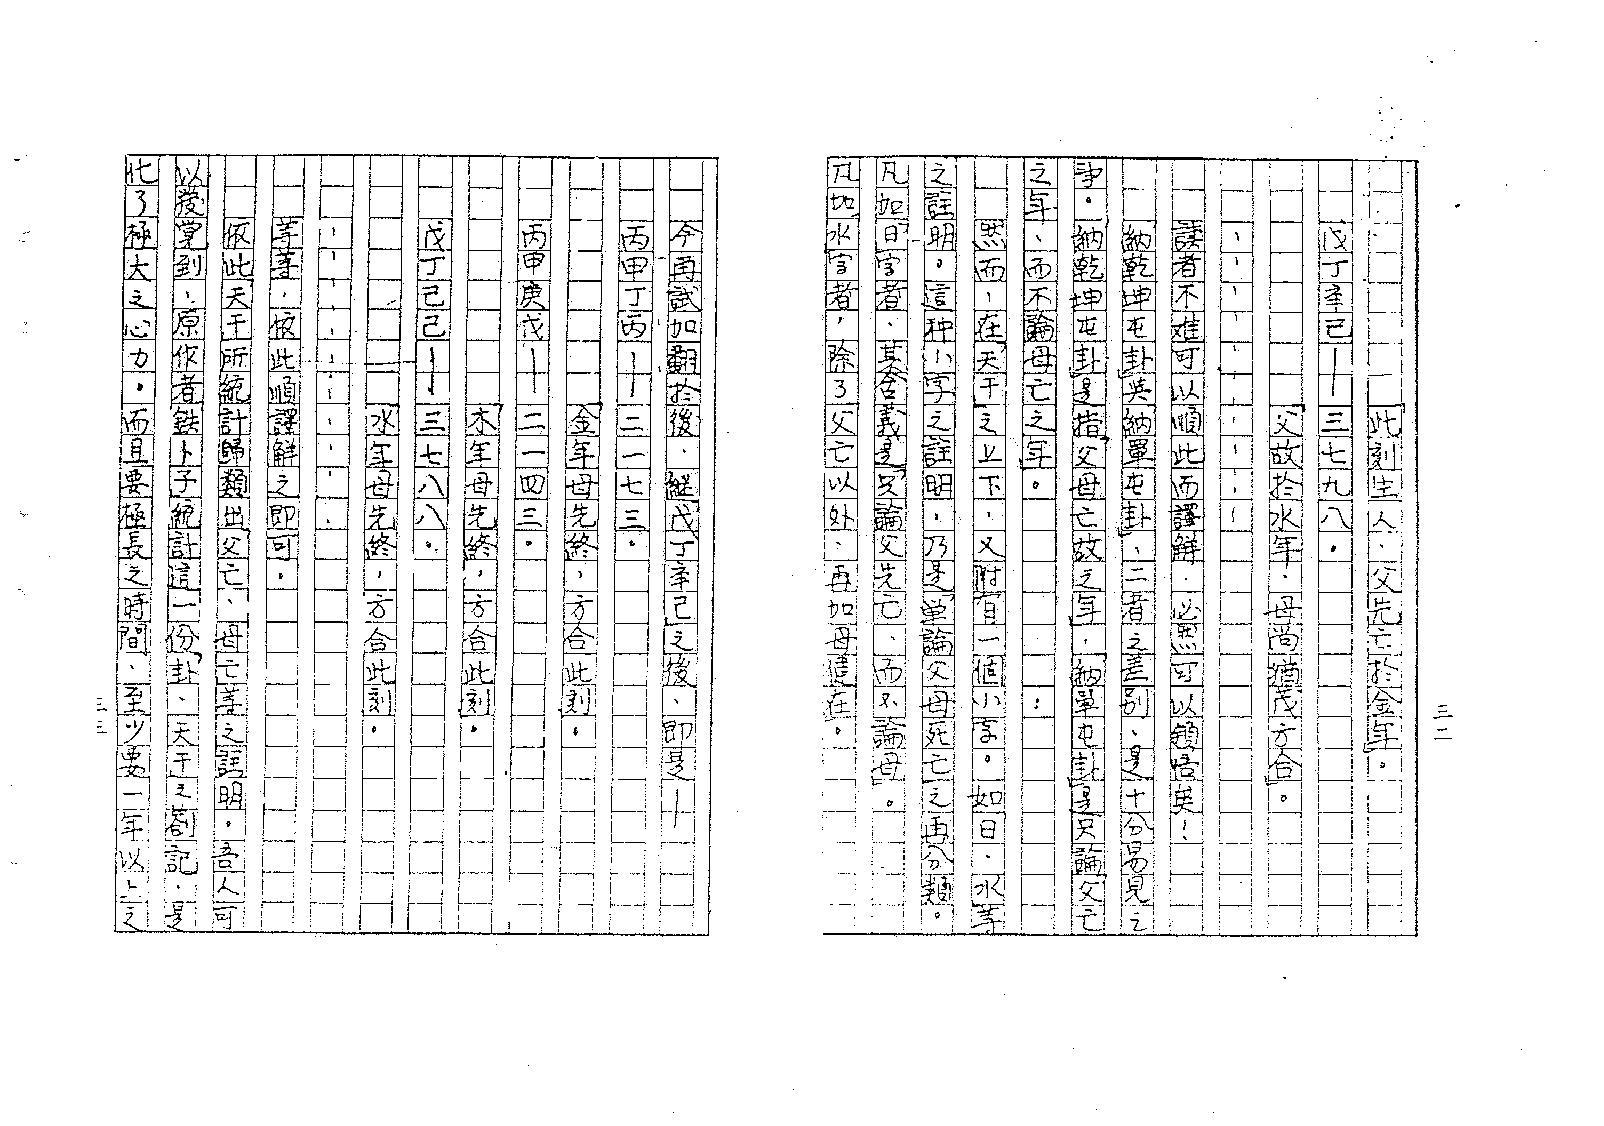 三二
此刻生人、父先亡於金年。
戊丁辛己——三七九八。
父故於水年、母尚猶茂方合。
讀者不難可以順此而譯解、必然可以領悟矣!
「納乾坤屯卦」與「納單屯卦」、二者之差別、是十分易見之
事。「納乾坤屯卦」是指「父母亡故之年」、「納單屯卦」是只論「父亡
之年、而不論母亡之年」。
然而、在「天干」之上下、又附有一個小字。如日、水等
之註明。這种小字之註明、乃是單論父母死亡之再分類。
凡如「日」字者、其含義是「只論父先亡、而不論母」。
凡如「水」字者,除了父亡以外、再加「母遠在」。
今再試如翻於後、繼「戊丁辛己」之後、即是——
丙甲丁丙——二一七三。
金年母先終,方合此刻。
丙甲庚戊——二一四三。
木年母先終,方合此刻。
戊丁己己——三七八八。
水年母先終,方合此刻。
等等、依此順譯解之即可。
依此天干所統計歸類出父亡、母亡等之註明。吾人可
以發覺到、原作者「鉄卜子」統計這一份「卦、天干之劄記」、是
化了極大之心力。而且要極長之時間、至少要一年以上之
三三